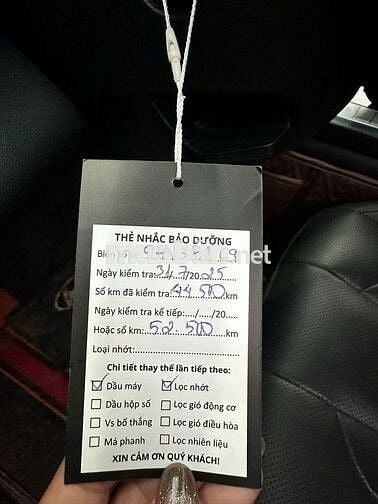 THẺ NHẮC BẢO DƯỠNG
Biển số:
Ngày kiểm tra: 31/7/2025
Số km đã kiểm tra: 44500 km
Ngày kiểm tra kế tiếp:..../...../20.....
Hoặc số km: 52.500 km
Loại nhớt:
Chi tiết thay thế lần tiếp theo:
Dầu máy Lọc nhớt
Dầu hộp số Lọc gió động cơ
Vs bố thắng Lọc gió điều hòa
Má phanh Lọc nhiên liệu
XIN CẢM ƠN QUÝ KHÁCH!